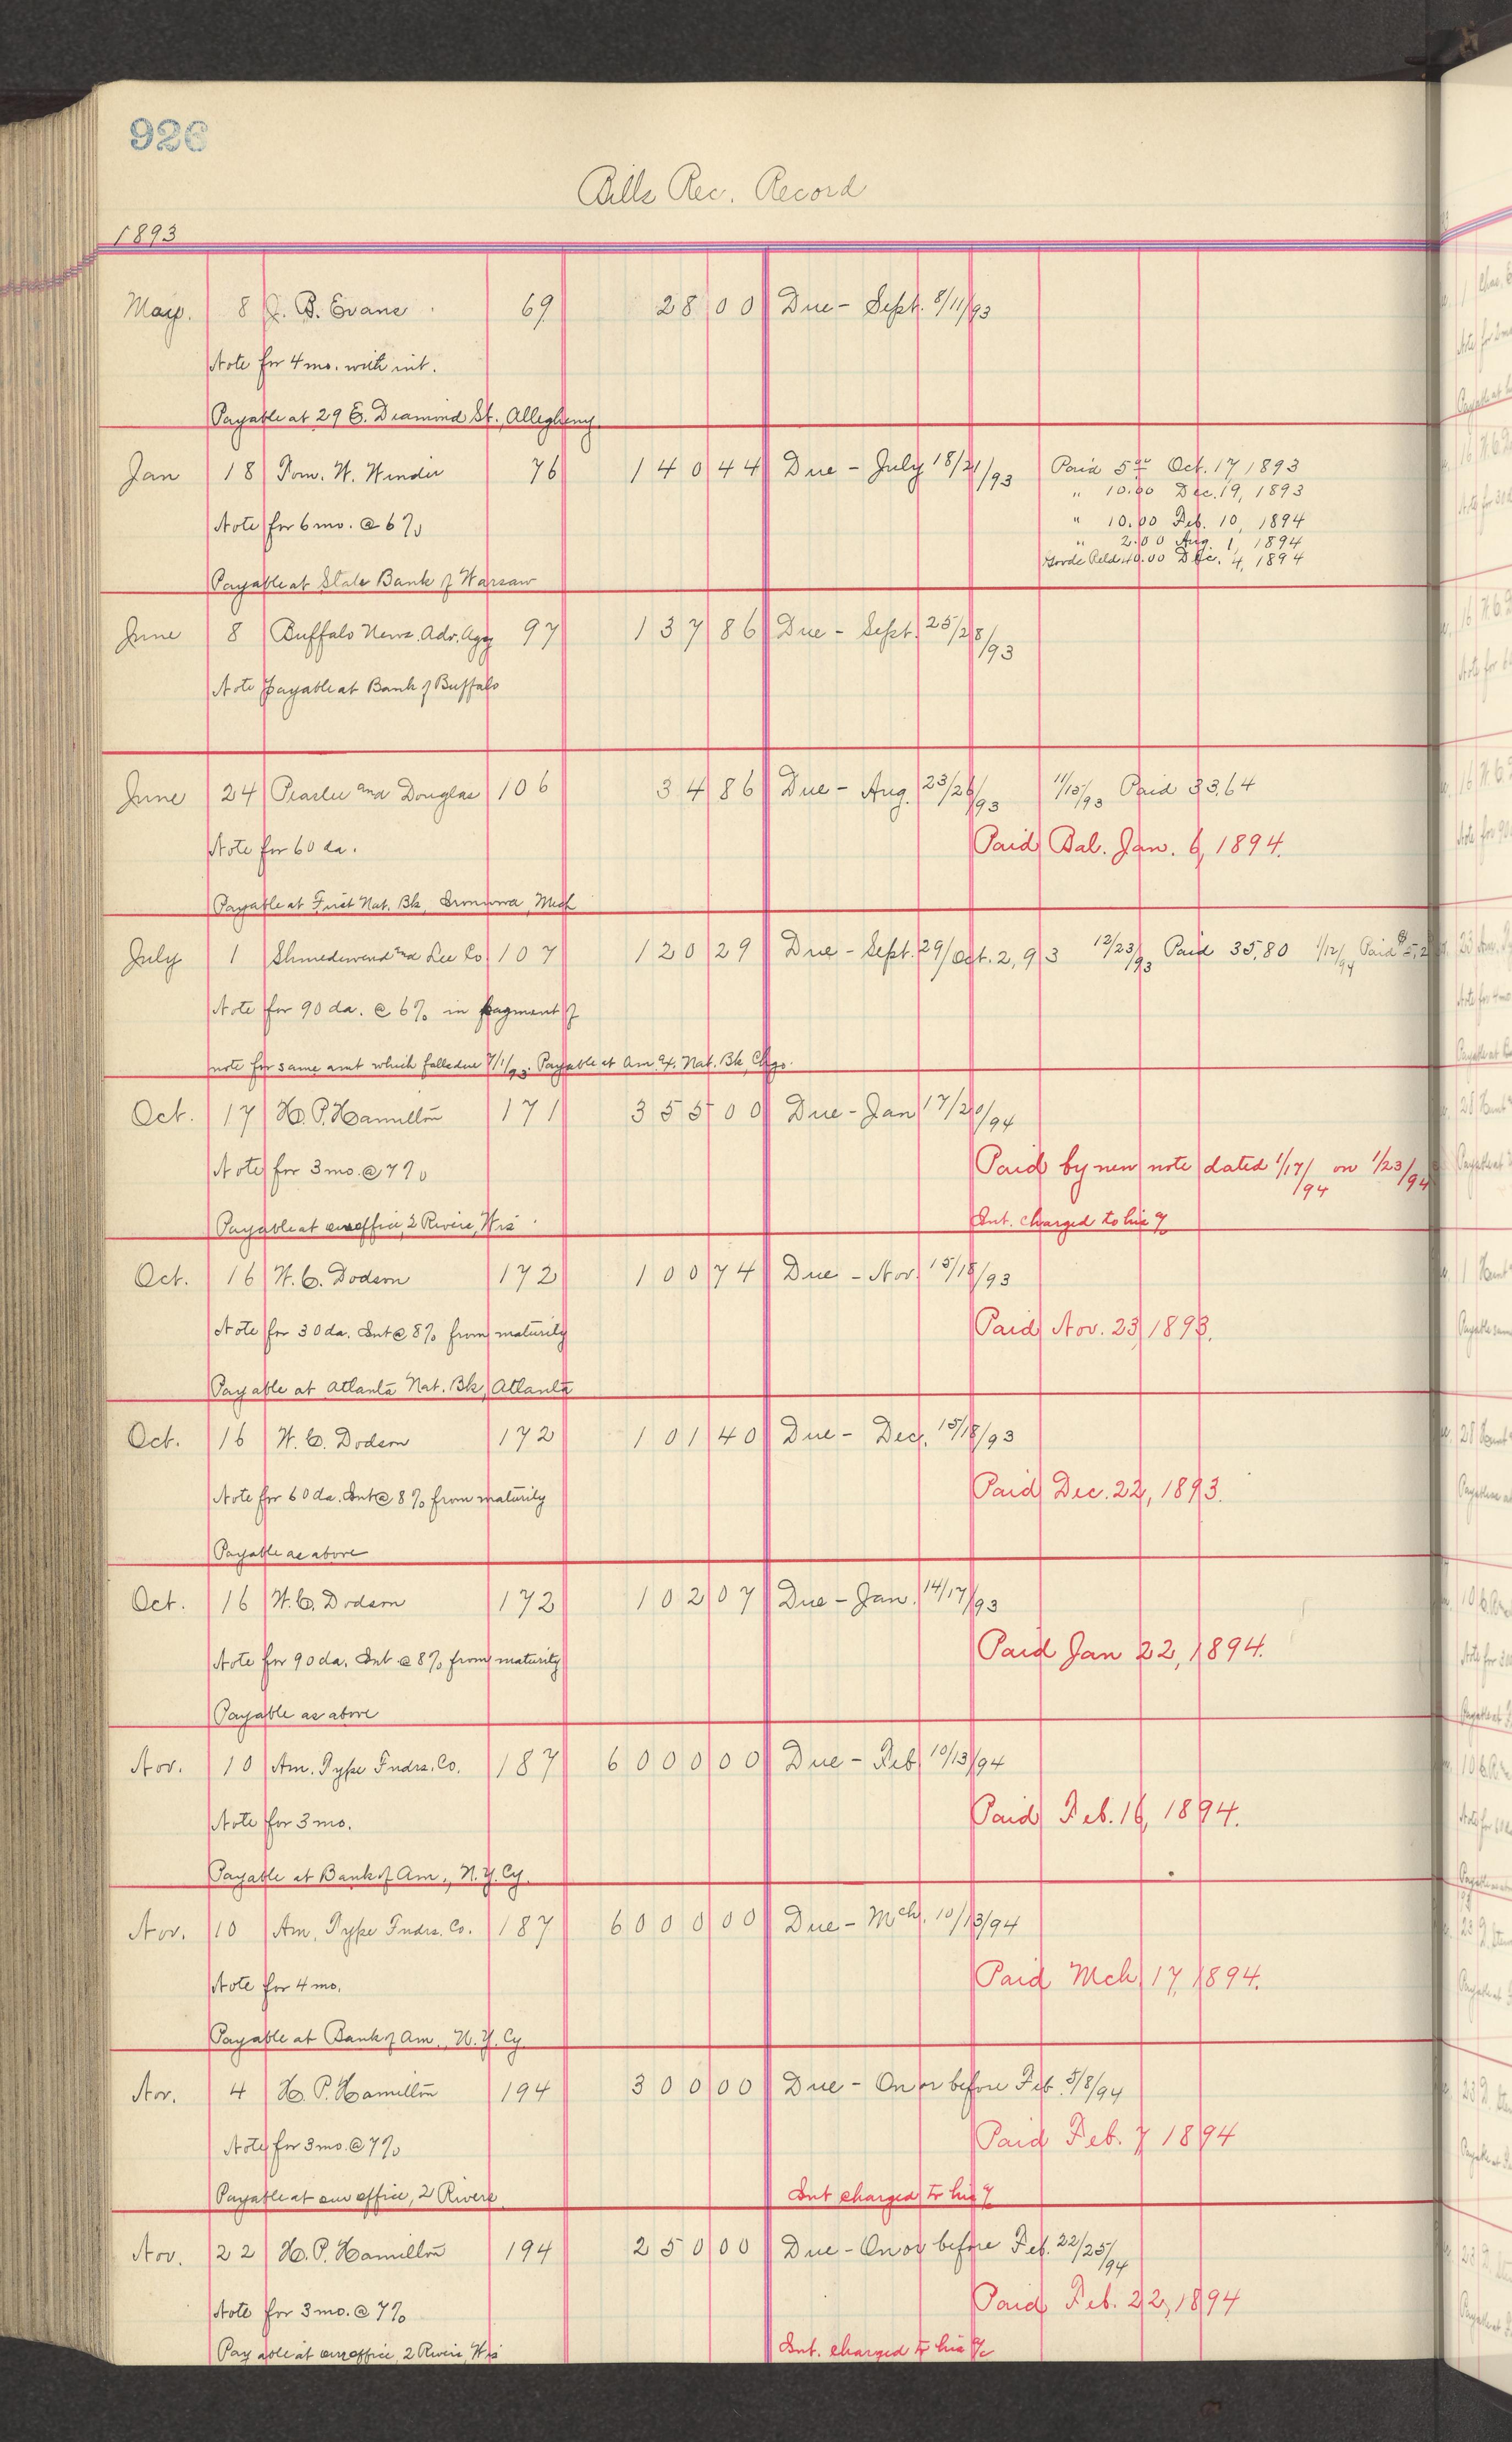 926
Bills Rec. Record
1893
May. 8 J. B. Evans 69 28 00 Due - Sept. 8/11/93
Note for 4 mo. with int.
Payable at 29 E. Diamond St., Allegheny.
Jan 18 Tom. W. Winder 76 140 44 Due - July 18/21/93 Paid 5.00 Oct. 17 1893
" 10.00 Dec. 19, 1893
Note for 6 mo. @ 6% " 10.00 Feb. 10, 1894
" 2.00 Aug 1, 1894
40.00 Dec. 4, 1894
Payable at State Bank of Warsaw
June 8 Buffalo News. Adv. Agy 97 137 86 Due - Sept. 25/28/93
Note payable at Bank of Buffalo
June 24 and Douglas 106 34 86 Due - Aug. 23/26/93 11/15/93 Paid 33.64
Note for 60 da. Paid Bal. Jan. 6, 1894.
Payable at First Nat. Bk, Mich
July 1 and Lee Co. 107 120 29 Due - Sept. 29/Oct. 2, 93 12/23/93 Paid 35.80 1/12/94 Paid $
Note for 90 da. @ 6% in payment of
note for same amt which falls due 7/1/93. Payable at Am. Ex. Nat. Bk, Chgo.
Oct. 17 H. P. Hamilton 171 355 00 Due - Jan 17/20/94
Note for 3 mo. @ 7% Paid by new note dated 1/17/94 on 1/23/94
Payable at our office, 2 Rivers, Wis. Int. charged to his %
Oct. 16 W. C. Dodson 172 100 74 Due - Nov. 15/18/93
Note for 30 da. Int @ 8% from maturity Paid Nov. 23, 1893.
Payable at Atlanta Nat. Bk, Atlanta
Oct. 16 W. C. Dodson 172 101 40 Due - Dec. 15/18/93
Note for 60 da. Int @ 8% from maturity Paid Dec. 22, 1893.
Payable as above
Oct. 16 W. C. Dodson 172 102 07 Due - Jan. 14/17/93
Note for 90 da. Int @ 8% from maturity Paid Jan 22, 1894.
Payable as above
Nov. 10 Am. Type Fndrs. Co. 187 6000 00 Due - Feb 10/13/94
Note for 3 mo. Paid Feb. 16, 1894.
Payable at Bank of Am., N.Y. Cy.
Nov. 10 Am. Type Fndrs. Co. 187 6000 00 Due - Mch. 10/13/94
Note for 4 mo. Paid Mch 17, 1894.
Payable at Bank of Am., N.Y. Cy.
Nov. 4 H. P. Hamilton 194 300 00 Due - On or before Feb. 5/8/94
Note for 3 mo. @ 7% Paid Feb. 7 1894
Payable at our office, 2 Rivers Int charged to his %
Nov. 22 H. P. Hamilton 194 250 00 Due - On or before Feb. 22/25/94
Note for 3 mo. @ 7% Paid Feb. 22, 1894
Payable at our office, 2 Rivers, Wis Int. charged to his %